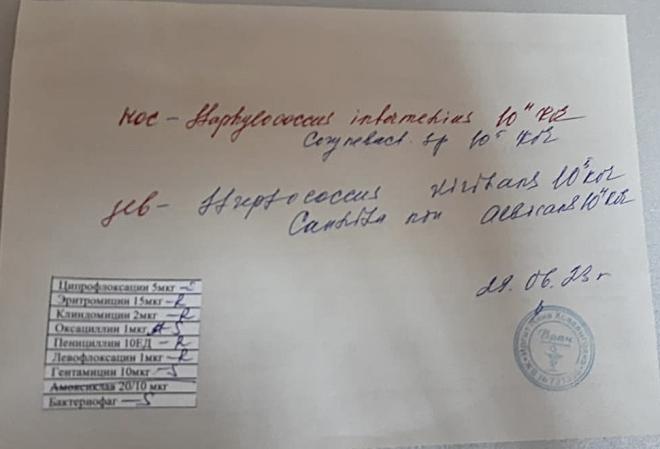 нос – Staphylococcus intermedius 10⁴ КОЕ
Corynebact. sp 10⁵ КОЕ
зев – Streptococcus viridans 10⁵ КОЕ
Candida non albicans 10⁴ КОЕ
29.06.23 г
Ципрофлоксацин 5мкг – S
Эритромицин 15мкг – R
Клиндомицин 2мкг – R
Оксациллин 1мкг – S
Пенициллин 10ЕД – R
Левофлоксацин 1мкг – R
Гентамицин 10мкг – S
Амоксиклав 20/10 мкг
Бактериофаг – S
Врач